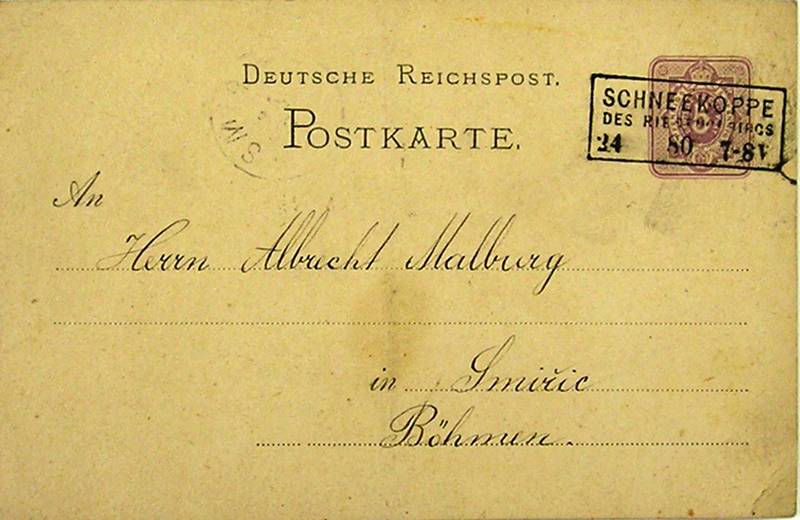 DEUTSCHE REICHSPOST.
POSTKARTE.
SCHNEEKOPPE
DES RIESENGEBIRGS
24 80 7-8V
SM
An
Herrn Albrecht Malburg
in Smiřic
Böhmen.